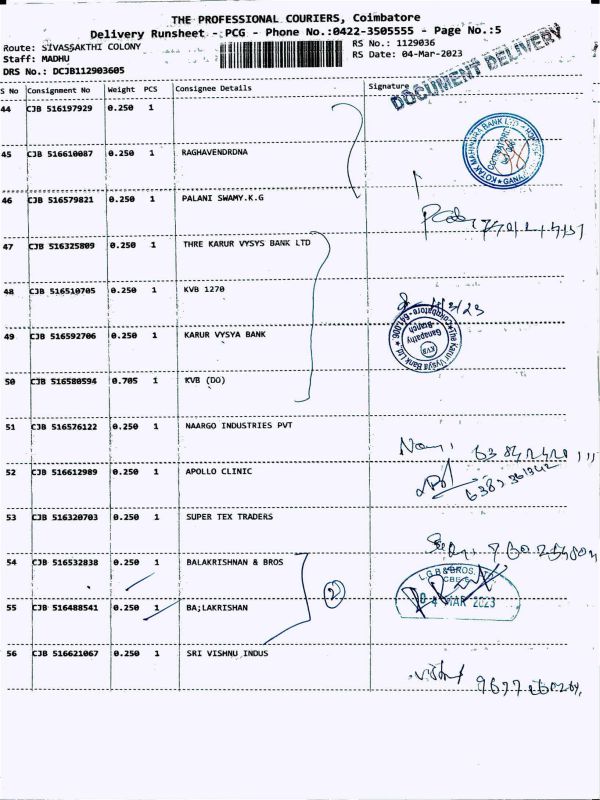 THE PROFESSIONAL COURIERS, Coimbatore
Delivery Runsheet - PCG - Phone No.:0422-3505555 - Page No.:5
Route: SIVASSAKTHI COLONY
RS No.: 1129036
Staff: MADHU
RS Date: 04-Mar-2023
DRS No.: DCJB112903605
DOCUMENT DELIVERY
S No Consignment No Weight PCS Consignee Details Signature
44 CJB 516197929 0.250 1
45 CJB 516610087 0.250 1 RAGHAVENDRDNA
46 CJB 516579821 0.250 1 PALANI SWAMY.K.G
47 CJB 516325809 0.250 1 THRE KARUR VYSYS BANK LTD
48 CJB 516510705 0.250 1 KVB 1270
49 CJB 516592706 0.250 1 KARUR VYSYA BANK
The Karur Vysya Bank Ltd.
Ganapathy
Branch
KVB
Coimbatore - 641 006
50 CJB 516580594 0.705 1 KVB (DO)
51 CJB 516576122 0.250 1 NAARGO INDUSTRIES PVT
52 CJB 516612989 0.250 1 APOLLO CLINIC
53 CJB 516320703 0.250 1 SUPER TEX TRADERS
54 CJB 516532838 0.250 1 BALAKRISHNAN & BROS
L.G.B & BROS. LTD
CBE-6
2
04 MAR 2023
55 CJB 516488541 0.250 1 BA;LAKRISHAN
56 CJB 516621067 0.250 1 SRI VISHNU INDUS